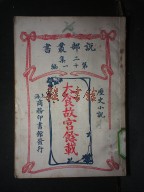 說部叢書
二集第十一編
歷史小說
大食故宮餘載
上海商務印書館發行